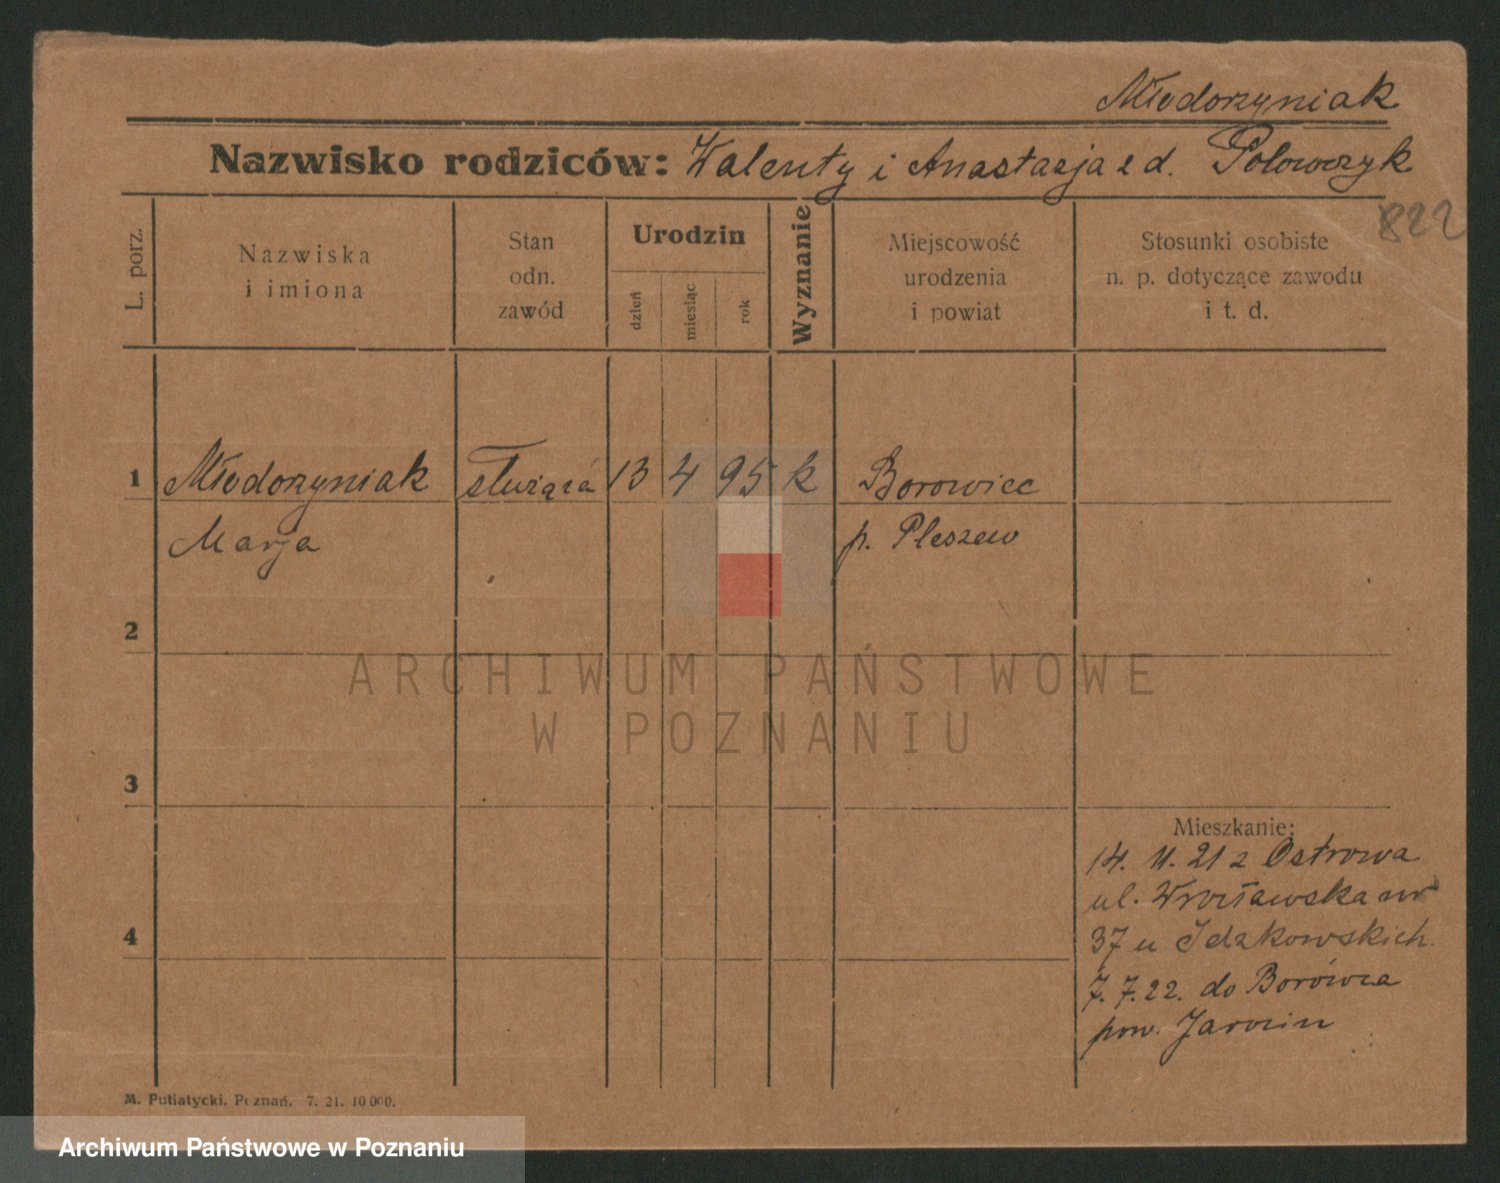 Młodorzyniak
Nazwisko rodziców: Walenty i Anastazja z d. Polowczyk
822
L. porz.
Nazwiska
i imiona
Stan
odn.
zawód
Urodzin
dzień
miesiąc
rok
Wyznanie
Miejscowość
urodzenia
i powiat
Stosunki osobiste
n. p. dotyczące zawodu
i t. d.
1 Młodorzyniak służąca 13 4 95 k Borowiec
Marja p. Pleszew
2
ARCHIWUM PAŃSTWOWE
W POZNANIU
3
Mieszkanie:
14. 11. 21 z Ostrowa
ul. Wrocławska nr
4
37 u Idzkowskich
7. 7. 22. do Borówca
pow. Jarocin
M. Putiatycki, Poznań. 7. 21. 10 000.
Archiwum Państwowe w Poznaniu